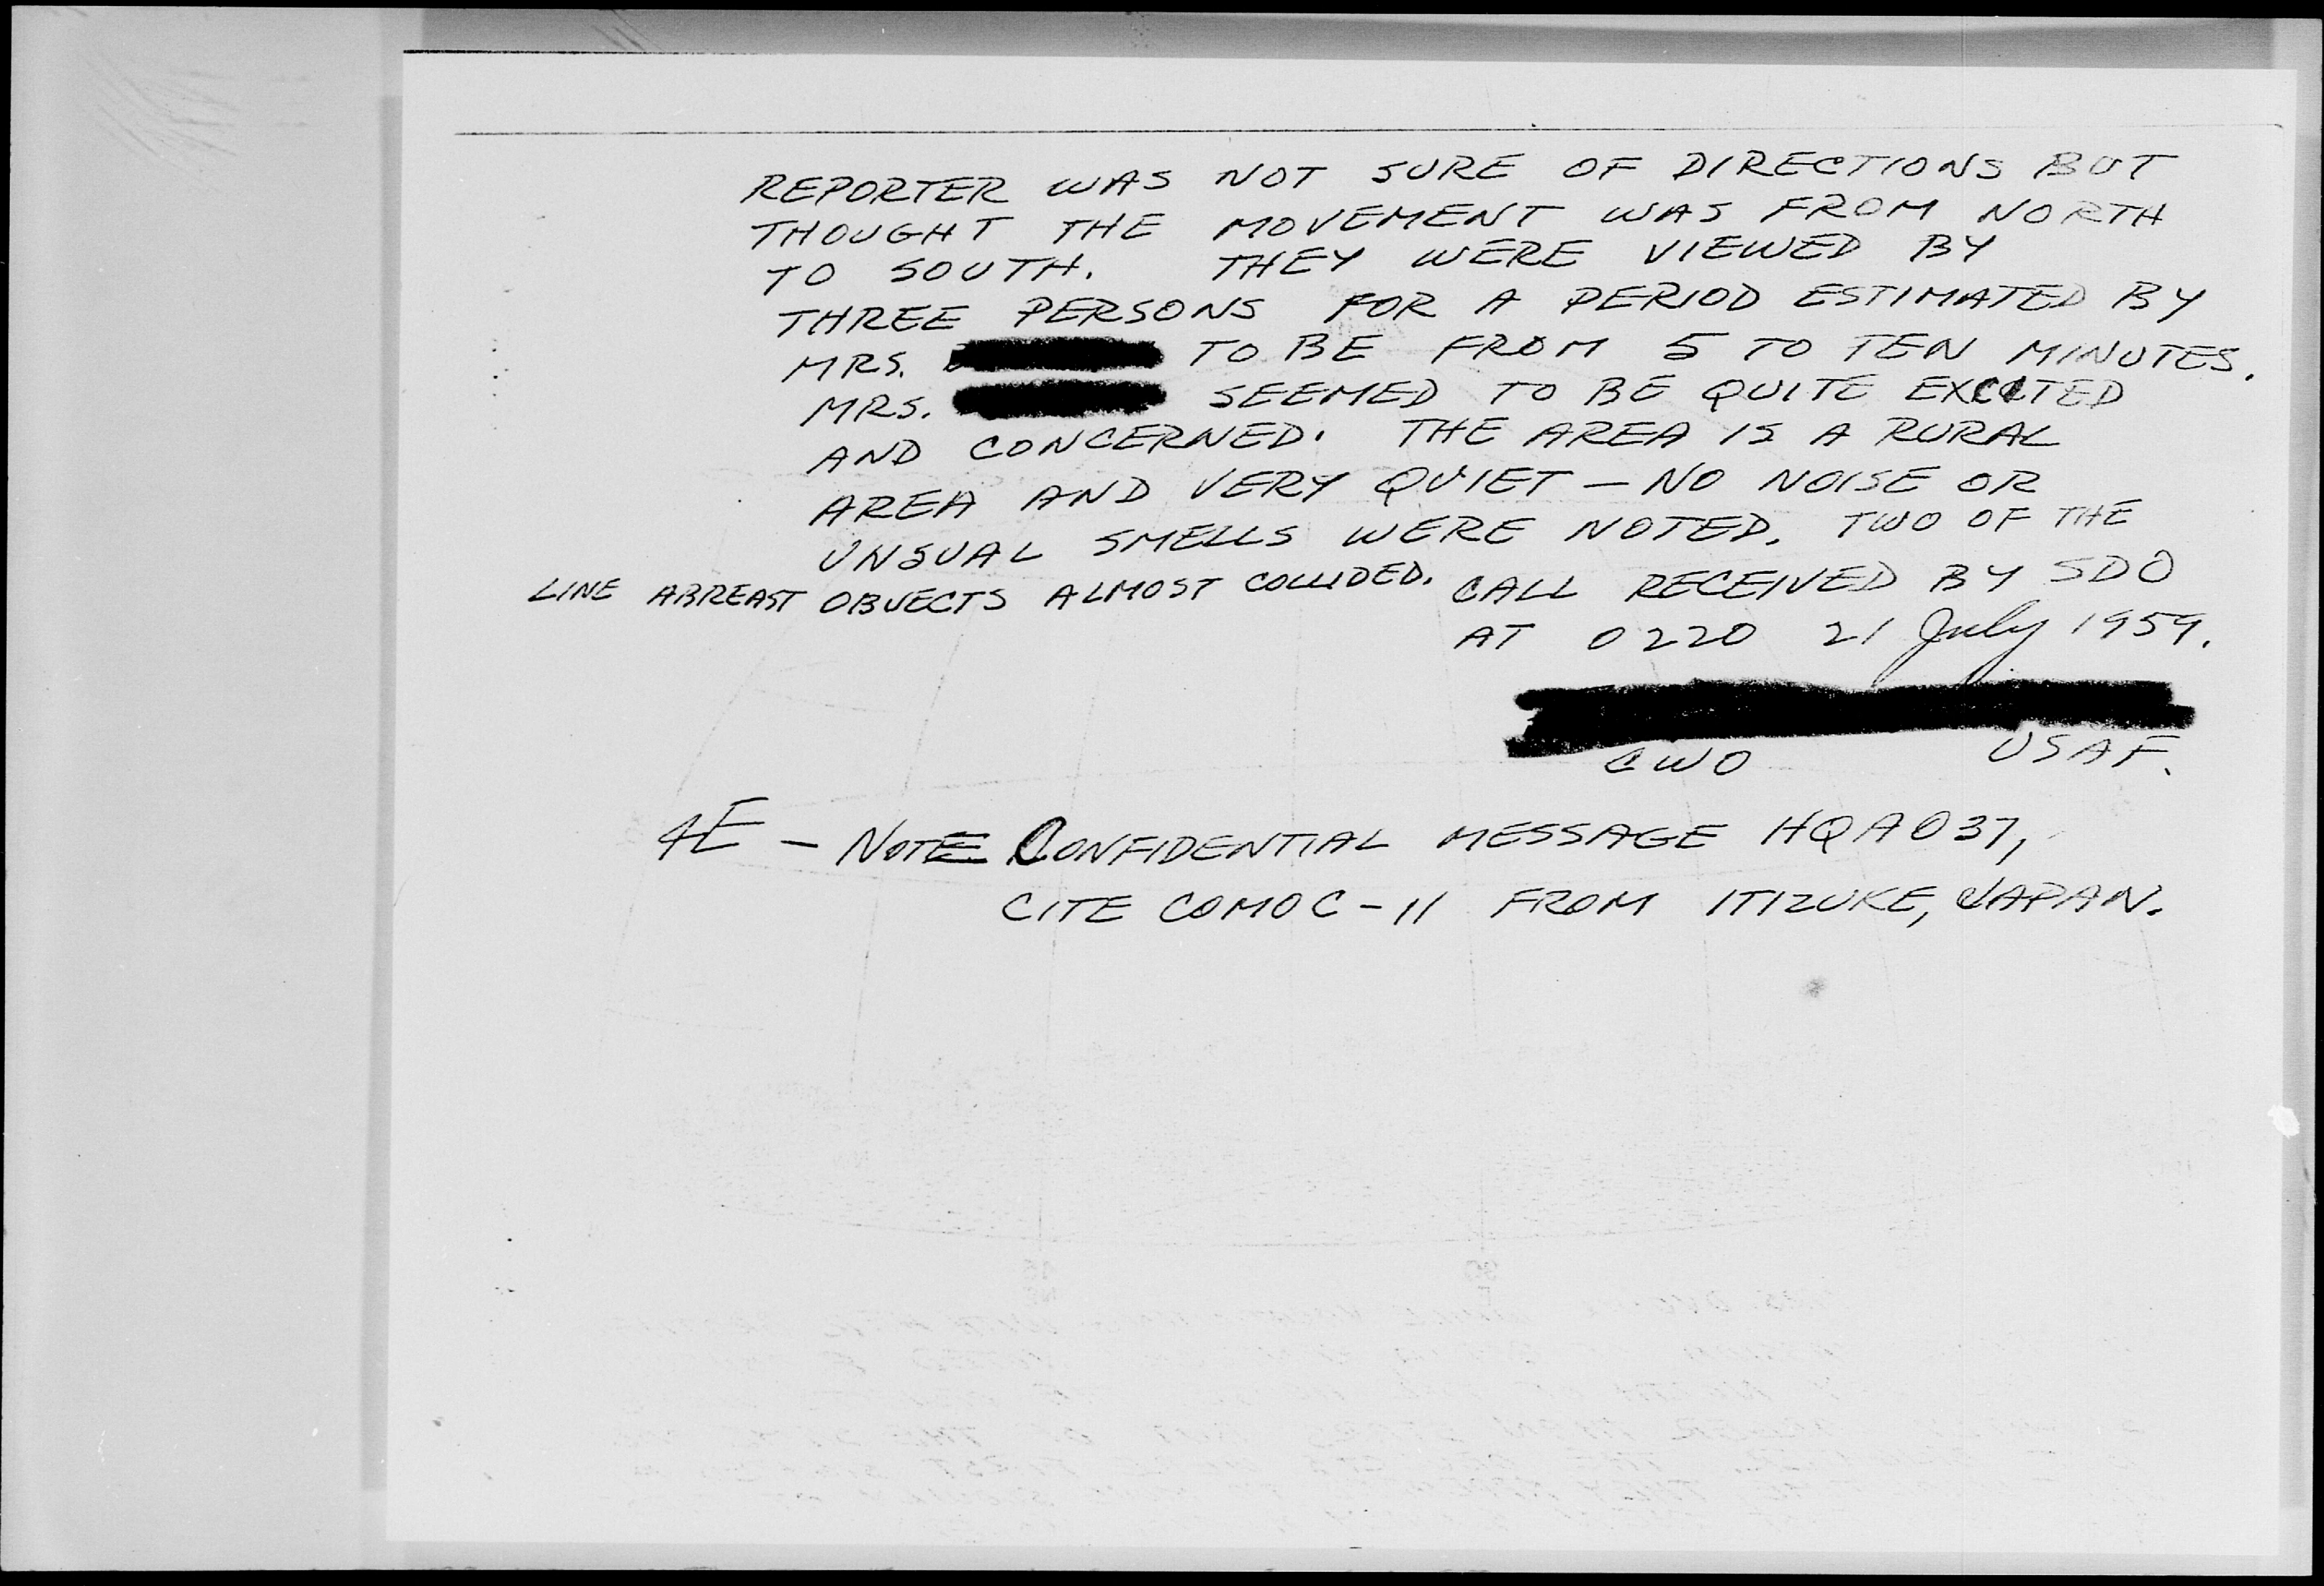 REPORTER WAS NOT SURE OF DIRECTIONS BUT
THOUGHT THE MOVEMENT WAS FROM NORTH
TO SOUTH. THEY WERE VIEWED BY
THREE PERSONS FOR A PERIOD ESTIMATED BY
MRS. TO BE FROM 5 TO TEN MINUTES.
MRS. SEEMED TO BE QUITE EXCITED
AND CONCERNED. THE AREA IS A RURAL
AREA AND VERY QUIET — NO NOISE OR
UNSUAL SMELLS WERE NOTED. TWO OF THE
LINE ABREAST OBJECTS ALMOST COLLIDED. CALL RECEIVED BY SDO
AT 0220 21 July 1959.
CWO USAF.
4E — NOTE CONFIDENTIAL MESSAGE HQA037,
CITE COMOC-11 FROM ITIZUKE, JAPAN.